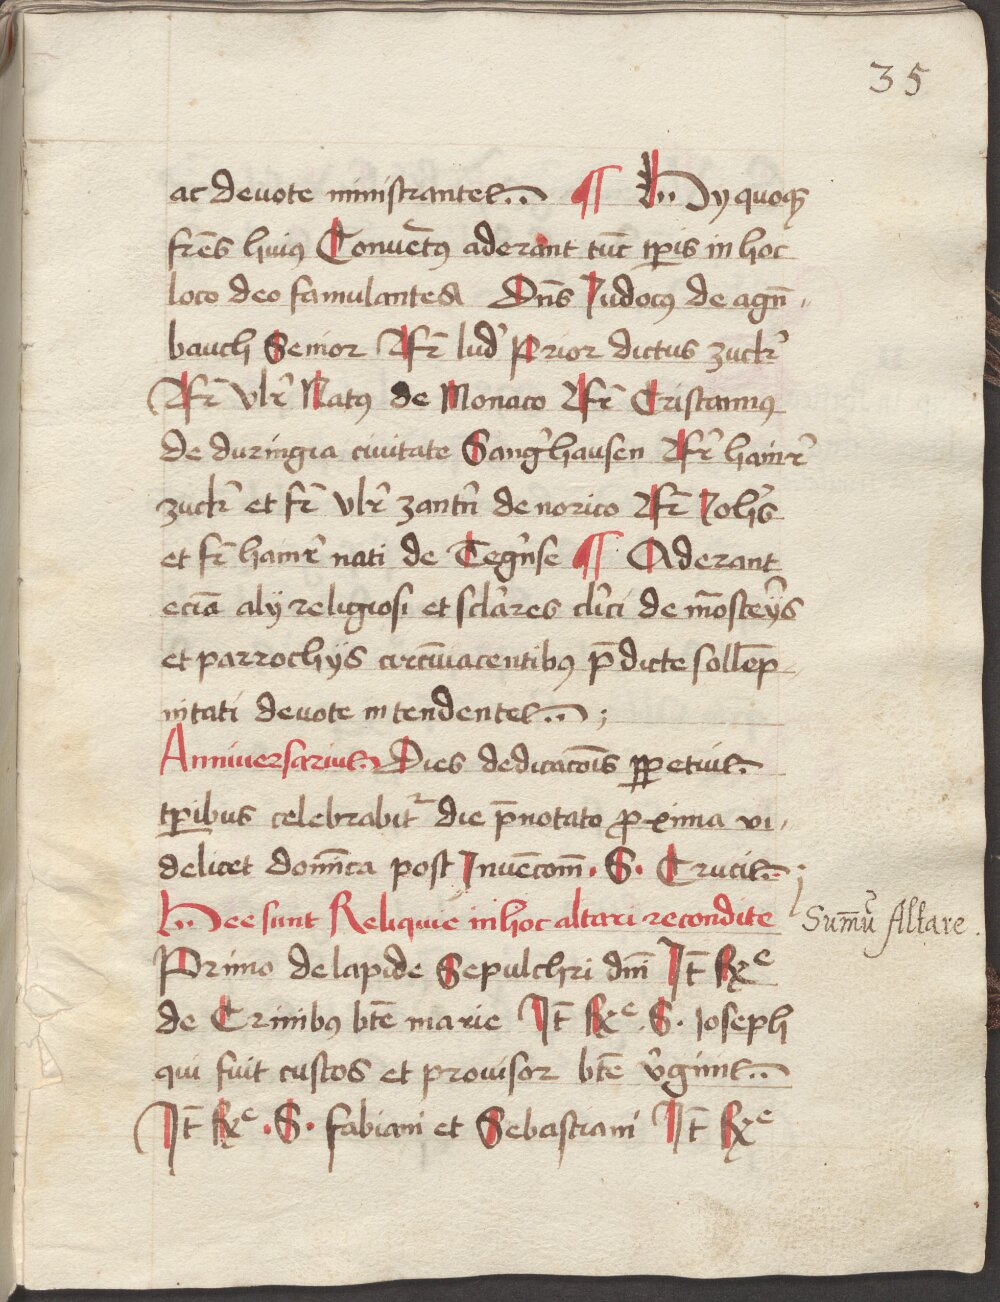 35
ac deuote ministrantes ¶ Hy quoqꝫ
fr̄es huiꝰ Conuētꝰ aderant tūc tp̄is in hoc
loco deo famulantes Dn̄s Iudocꝰ de agn̄-
bauch Senior Fr̄ lud' Prior dictus zuckr'
Fr̄ Vlr' Natꝰ de Monaco Fr̄ Cristannꝰ
de duringia ciuitate Sangr'hausen Fr' hainr'
zuckr' et fr̄ vlr' zantn' de norico Fr̄ Ioh'is
et fr̄ hainr' nati de Tegn'se ¶ Aderant
eciā alij religiosi et sclāres cl'ici de mōsterijs
et parrochijs circūiacentibꝰ p̄dicte sollēp
nitati deuote intendentes ;
Anniuersarius Dies dedicacōis ꝑpetuis
tp̄ibus celebrabit᷑ die p̄notato ꝓxima vi-
delicet domīca post Inuēcōem · S · Crucis ;
Hee sunt Reliquie in hoc altari recondite
Sum̄ū Altare.
Primo de lapide Sepulchri dn̄i It̄ Rxe
de Crinibꝰ btē marie It̄ Rxe · S · Ioseph
qui fuit custos et prouisor btē v'ginis
It̄ Rxe · S · fabiani et Sebastiani It̄ Rxe